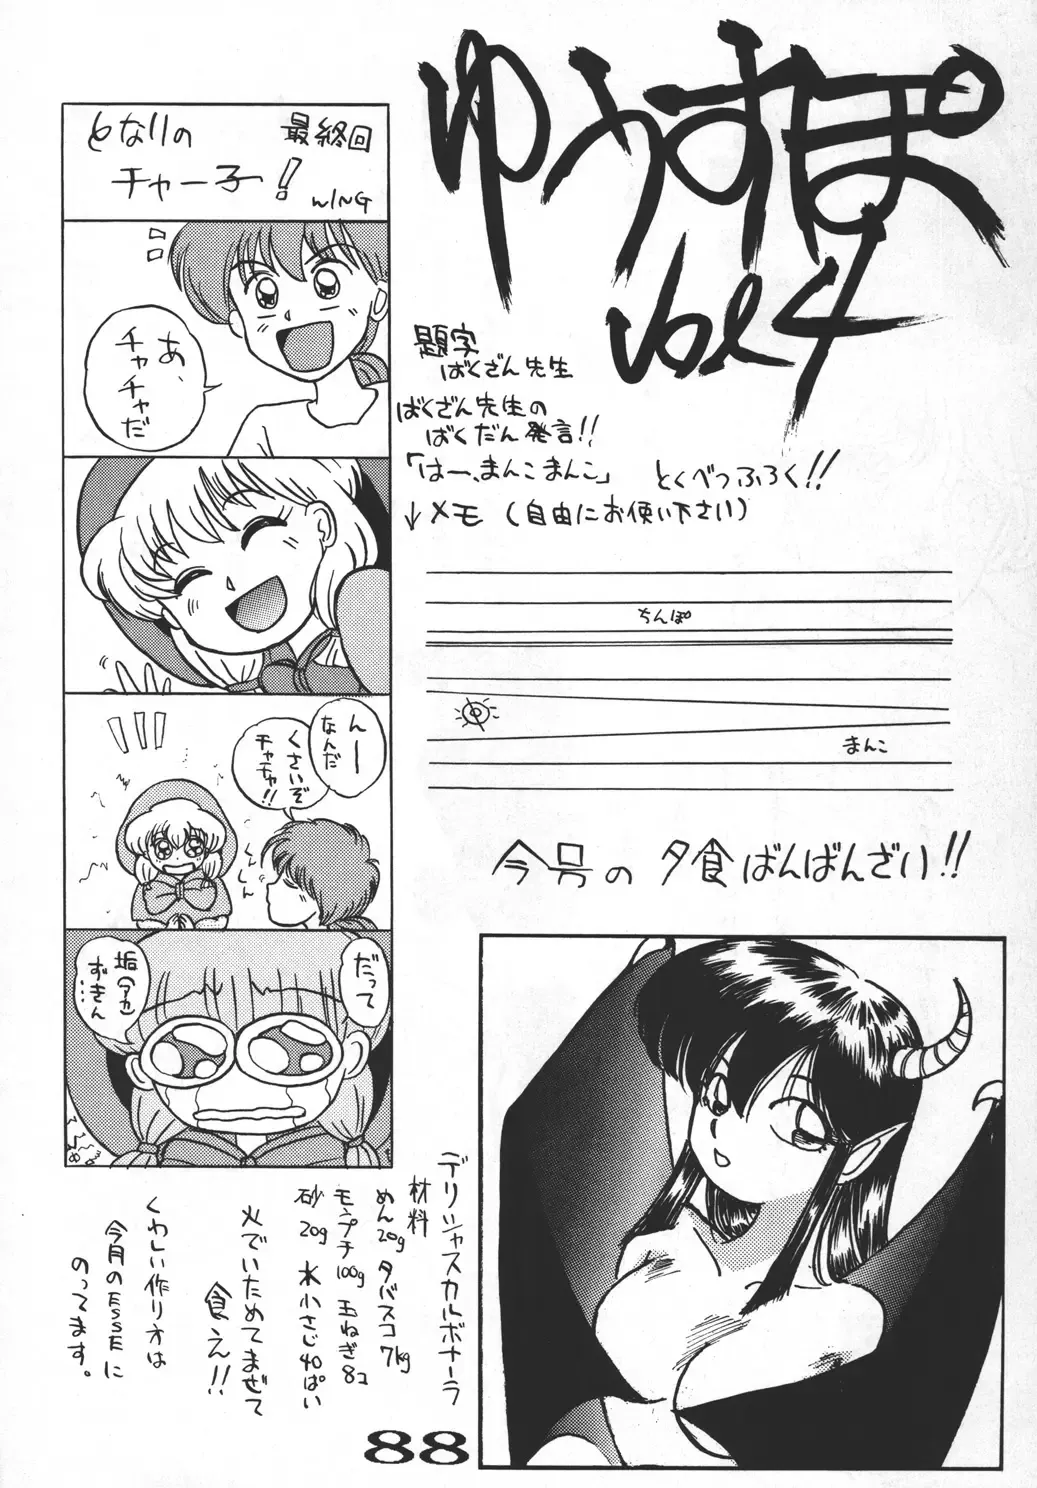 ゆうすぽ
Vol 4
題字
ばくざん先生
ばくざん先生の
ばくだん発言!!
「はー、まんこまんこ」 とくべつふろく!!
↓メモ (自由にお使い下さい)
ちんぽ
まんこ
今号の夕食ばんばんざい!!
となりの 最終回
チャー子! WING
あ、
チャチャだ
んー
なんだ
くさいぞ
チャチャ!!
くんくん
だって
垢(アカ)
ずきん…
デリシャスカルボナーラ
材料
めん20g タバスコ7kg
モンプチ100g 玉ねぎ8コ
砂20g 水小さじ40ぱい
火でいためてまぜて
食え!!
くわしい作り方は
今月のESSEに
のってます。
88